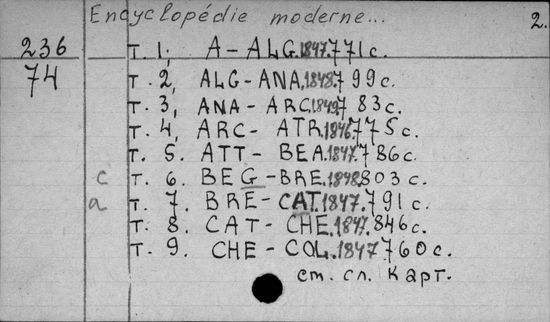 Encyclopédie moderne... 2.
236 т. 1, A-ALG.1847.771с.
74 т. 2, ALG-ANA.1848.799с.
т. 3, ANA-ARC.1849.783с.
т. 4, ARC-ATR.1846.775с.
т. 5. ATT-BEA.1847.786с.
с т. 6. BEG-BRE.1848.803с.
а т. 7. BRE-CAT.1847.791с.
т. 8. CAT-CHE.1847.846с.
т. 9. CHE-COL.1847.760с.
см. сл. карт.